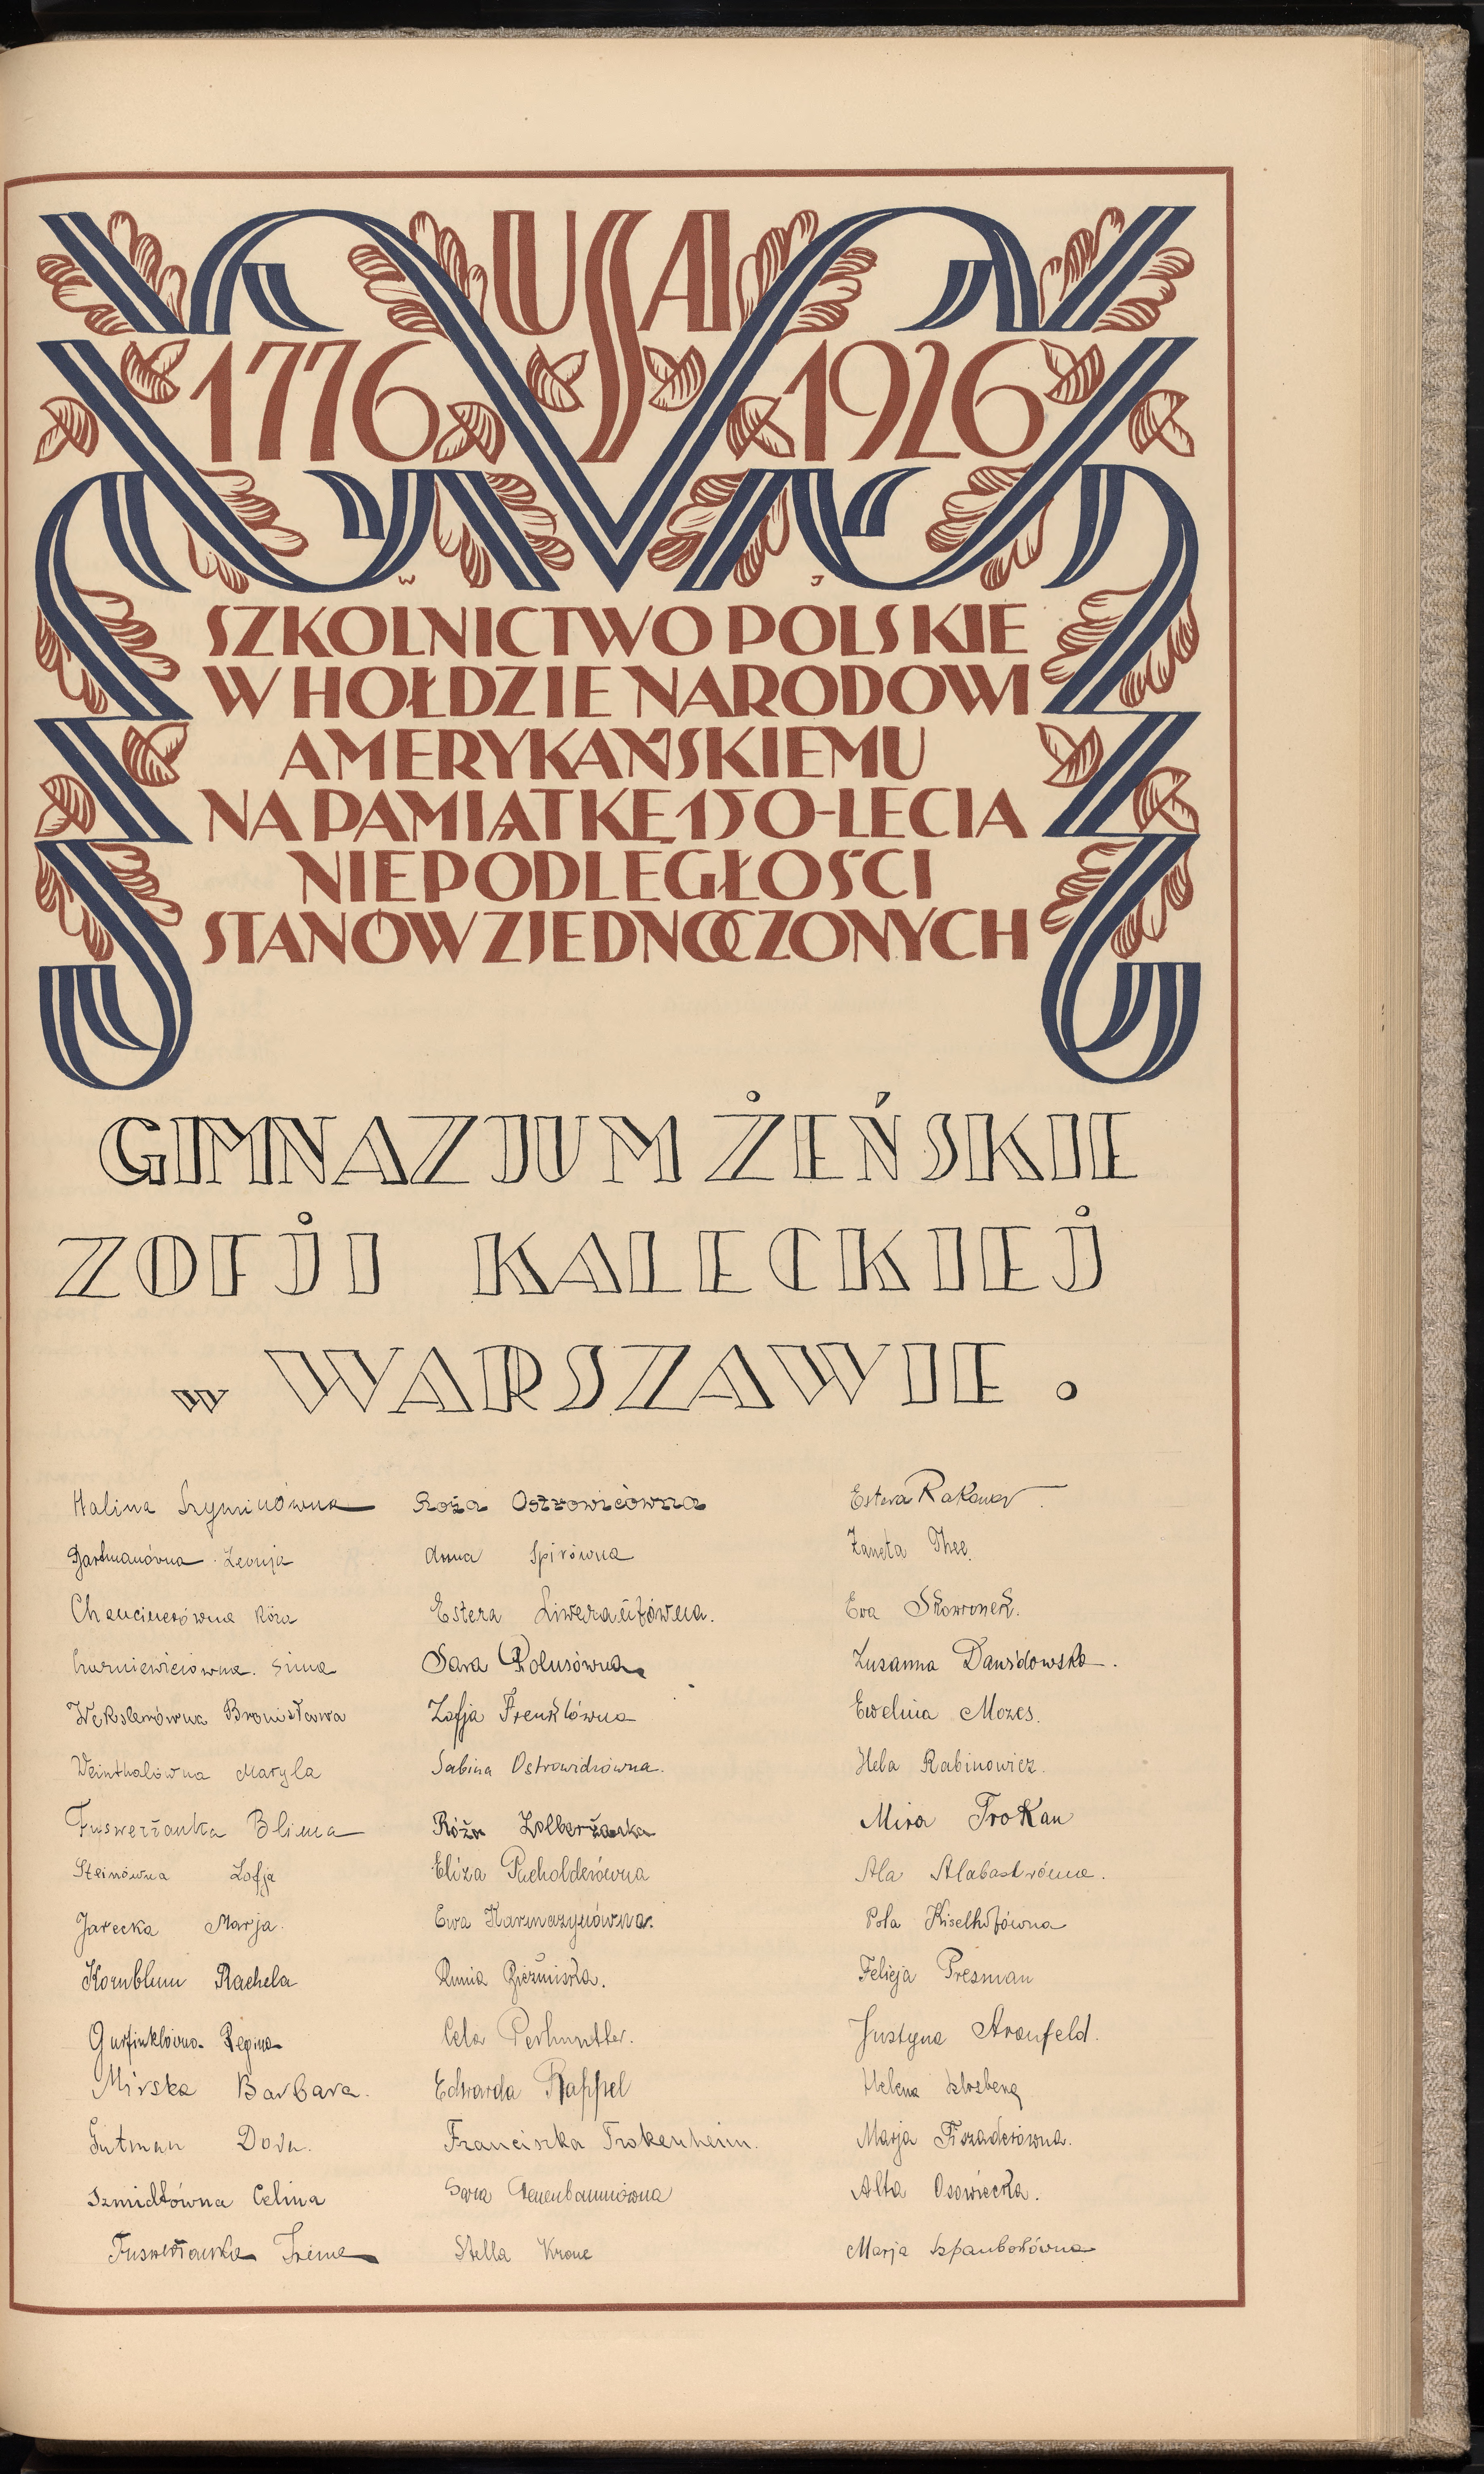 USA
1776 1926
W J
SZKOLNICTWO POLSKIE
W HOŁDZIE NARODOWI
AMERYKAŃSKIEMU
NA PAMIĄTKĘ 150-LECIA
NIEPODLEGŁOŚCI
STANÓW ZJEDNOCZONYCH
GIMNAZJUM ŻEŃSKIE
ZOFJI KALECKIEJ
w WARSZAWIE.
Halina Szyminówna
Gartmanówna Leonja
Chancinerówna Róża
Sima
Wekslerówna Bronisława
Weinthalówna Maryla
Fuswerżanka Blima
Steinówna Zofja
Jarecka Marja.
Kornblum Rachela
Gurfinklówna Regina
Mirska Barbara.
Gutman Dora.
Szmidtówna Celina
Fuswerżanka Irena
Roża Ostrowicówna
Anna Spirówna
Estera Liwerantówna.
Sara Polusówna
Zofja Frenklówna
Sabina
Róża Zolberżanka
Eliza Pucholderówna
Ewa Karmazynówna.
Runia
Cela
Edwarda Rappel
Franciszka Trokenheim.
Sara
Stella Krone
Estera Rakower.
Żaneta Thee.
Ewa Skowronek.
Zusanna Dawidowska.
Ewelina Mozes.
Hela Rabinowicz.
Mira Trokan
Ala Alabastrówna.
Pola Kiselhofówna
Felicja Presman
Justyna Aronfeld.
Helena Szlosberg
Marja Fiszaderówna.
Alta Osowiecka.
Marja Szpanbokówna